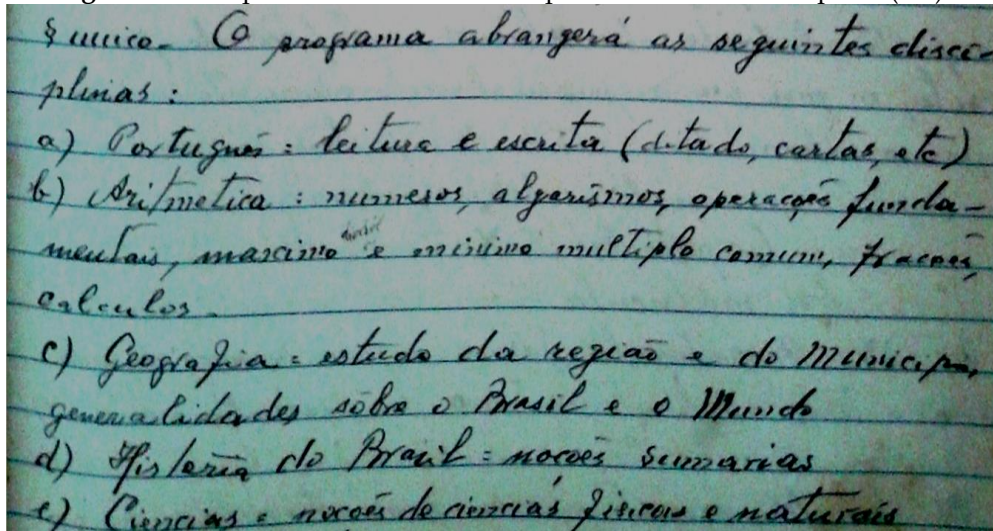 § unico. O programa abrangerá as seguintes disci-
plinas:
a) Portugués: leitura e escrita (ditado, cartas, etc)
b) Aritmetica: numeros, algarismos, operações funda-
mentais, maximo e minimo multiplo comum, frações,
calculos.
c) Geografia: estudo da região e do Municipio,
generalidades sôbre o Brasil e o Mundo
d) Historia do Brasil: noções sumarias
e) Ciencias: noções de ciencias fisicas e naturais